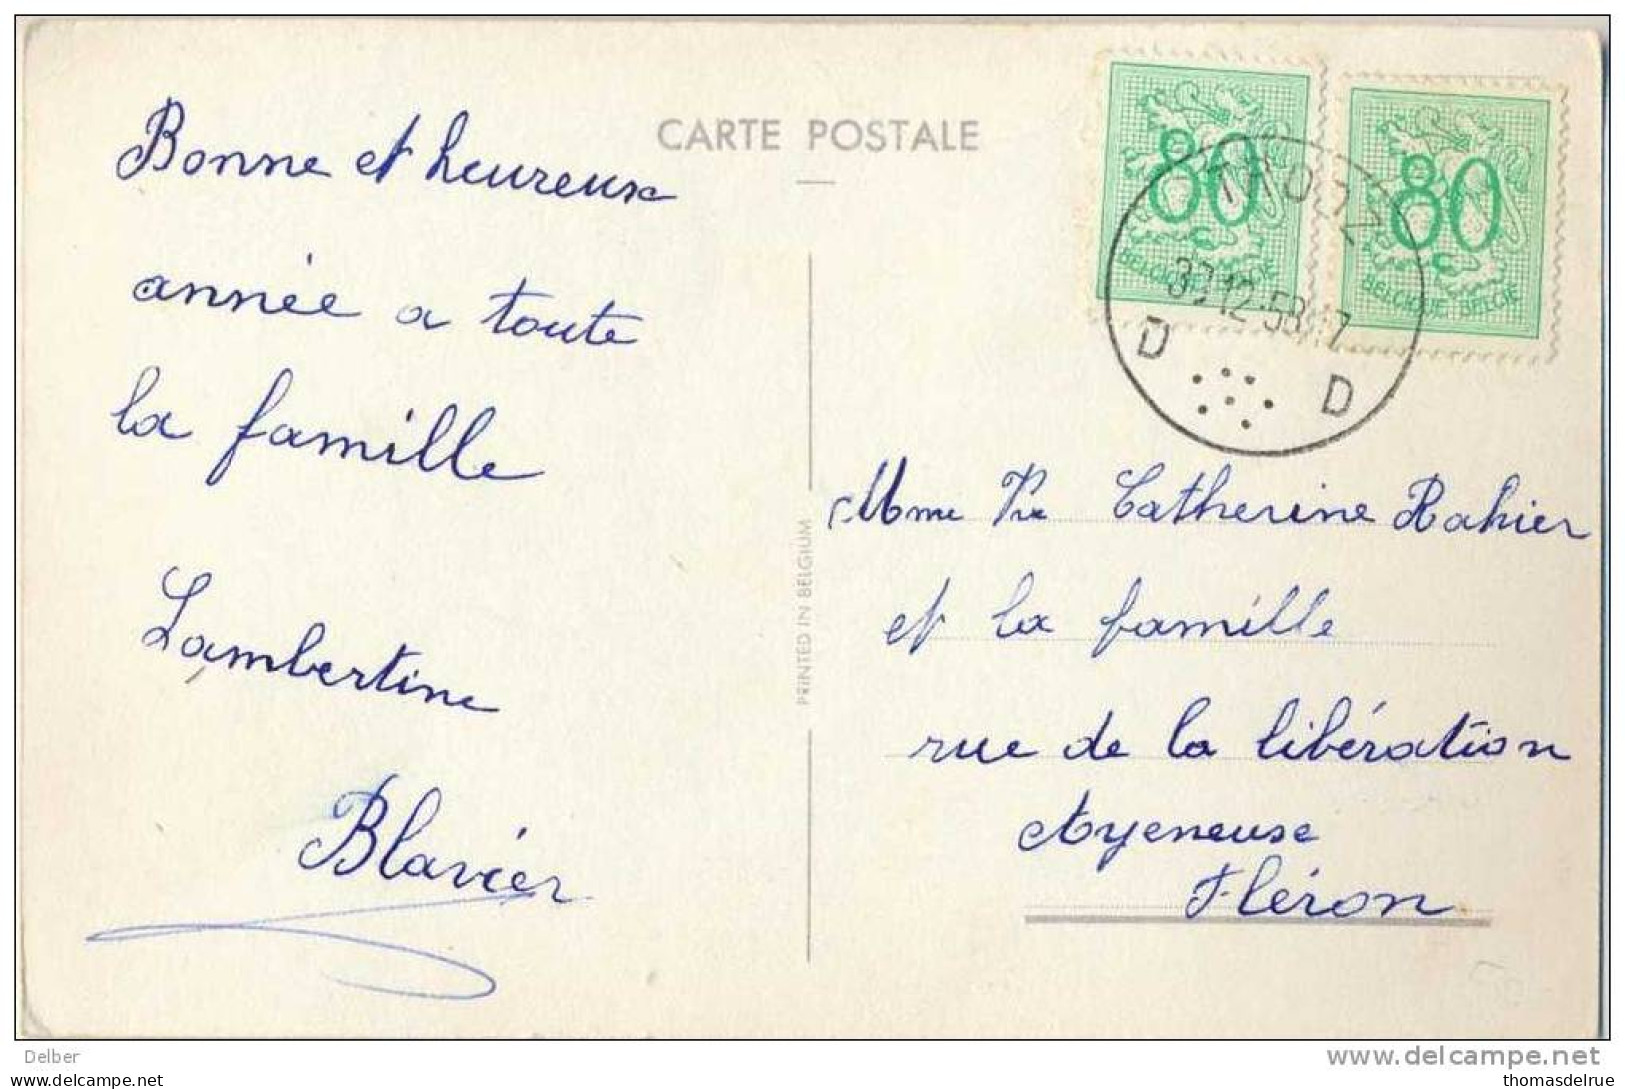 CARTE POSTALE
Bonne et heureuse
année a toute
la famille
Lambertine
Blavier
PRINTED IN BELGIUM
80
BELGIQUE BELGIE
80
BELGIQUE BELGIE
12-58
D D
Mme Catherine Rahier
et la famille
rue de la libération
Ayeneuse
Fléron
Delber
delcampe.net
www.delcampe.net
thomasdelrue